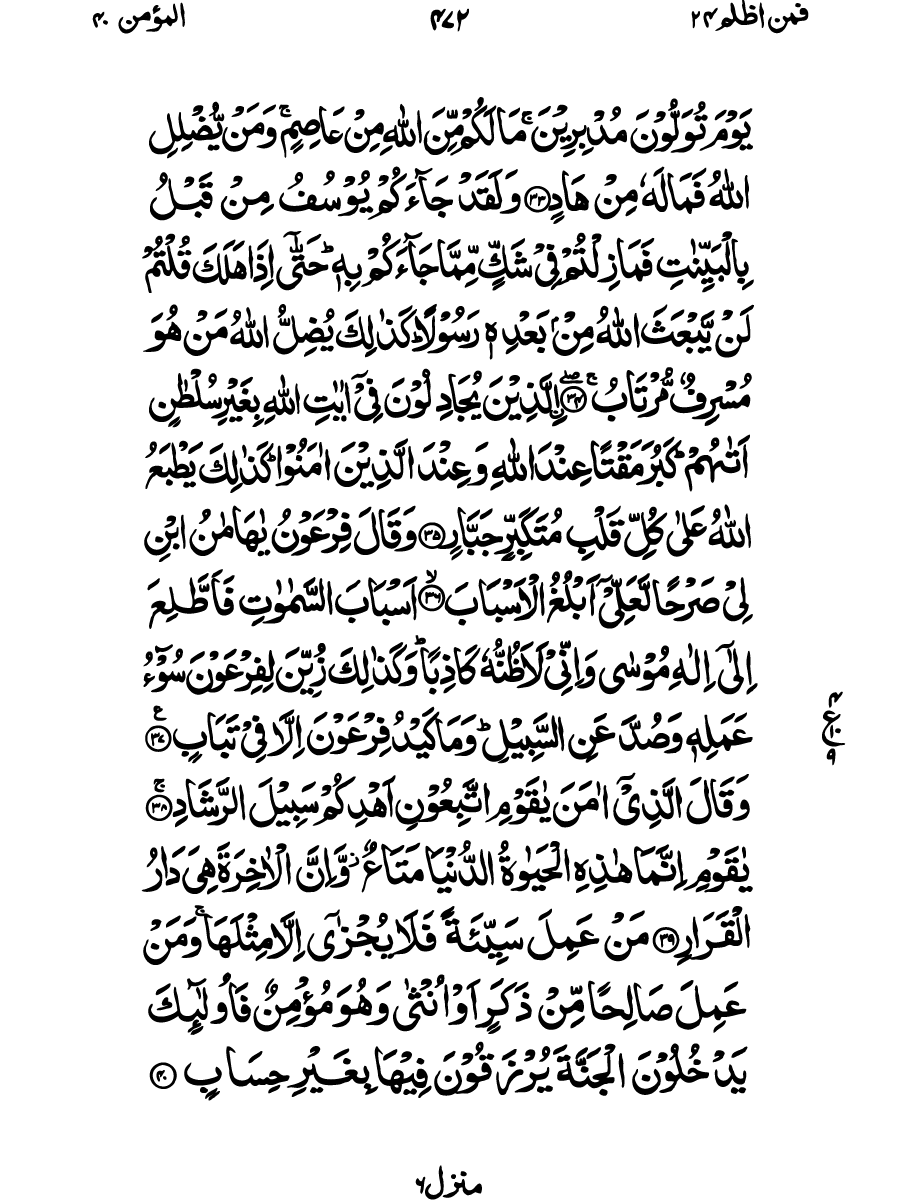 فمن اظلم ٢٤ ٤٧٢ المؤمن ٤٠
يَوْمَ تُوَلُّوْنَ مُدْبِرِيْنَۚ مَا لَكُمْ مِّنَ اللّٰهِ مِنْ عَاصِمٍۚ وَمَنْ يُّضْلِلِ
اللّٰهُ فَمَا لَهٗ مِنْ هَادٍ ﴿٣٣﴾ وَلَقَدْ جَآءَكُمْ يُوْسُفُ مِنْ قَبْلُ
بِالْبَيِّنٰتِ فَمَا زِلْتُمْ فِيْ شَكٍّ مِّمَّا جَآءَكُمْ بِهٖؕ حَتّٰۤى اِذَا هَلَكَ قُلْتُمْ
لَنْ يَّبْعَثَ اللّٰهُ مِنْۢ بَعْدِهٖ رَسُوْلًاؕ كَذٰلِكَ يُضِلُّ اللّٰهُ مَنْ هُوَ
مُسْرِفٌ مُّرْتَابُۚ ۖ ﴿٣٤﴾ اۨلَّذِيْنَ يُجَادِلُوْنَ فِيْۤ اٰيٰتِ اللّٰهِ بِغَيْرِ سُلْطٰنٍ
اَتٰىهُمْؕ كَبُرَ مَقْتًا عِنْدَ اللّٰهِ وَعِنْدَ الَّذِيْنَ اٰمَنُوْاؕ كَذٰلِكَ يَطْبَعُ
اللّٰهُ عَلٰى كُلِّ قَلْبِ مُتَكَبِّرٍ جَبَّارٍ ﴿٣٥﴾ وَقَالَ فِرْعَوْنُ يٰهَامٰنُ ابْنِ
لِيْ صَرْحًا لَّعَلِّيْۤ اَبْلُغُ الْاَسْبَابَ ۙ﴿٣٦﴾ اَسْبَابَ السَّمٰوٰتِ فَاَطَّلِعَ
اِلٰۤى اِلٰهِ مُوْسٰى وَاِنِّيْ لَاَظُنُّهٗ كَاذِبًاؕ وَكَذٰلِكَ زُيِّنَ لِفِرْعَوْنَ سُوْٓءُ
عَمَلِهٖ وَصُدَّ عَنِ السَّبِيْلِؕ وَمَا كَيْدُ فِرْعَوْنَ اِلَّا فِيْ تَبَابٍ ﴿٣٧﴾ ع
٤
ع ١٠
٩
وَقَالَ الَّذِيْۤ اٰمَنَ يٰقَوْمِ اتَّبِعُوْنِ اَهْدِكُمْ سَبِيْلَ الرَّشَادِ ۚ﴿٣٨﴾
يٰقَوْمِ اِنَّمَا هٰذِهِ الْحَيٰوةُ الدُّنْيَا مَتَاعٌؗ وَّاِنَّ الْاٰخِرَةَ هِيَ دَارُ
الْقَرَارِ ﴿٣٩﴾ مَنْ عَمِلَ سَيِّئَةً فَلَا يُجْزٰۤى اِلَّا مِثْلَهَاۚ وَمَنْ
عَمِلَ صَالِحًا مِّنْ ذَكَرٍ اَوْ اُنْثٰى وَهُوَ مُؤْمِنٌ فَاُولٰٓئِكَ
يَدْخُلُوْنَ الْجَنَّةَ يُرْزَقُوْنَ فِيْهَا بِغَيْرِ حِسَابٍ ﴿٤٠﴾
منزل ٦